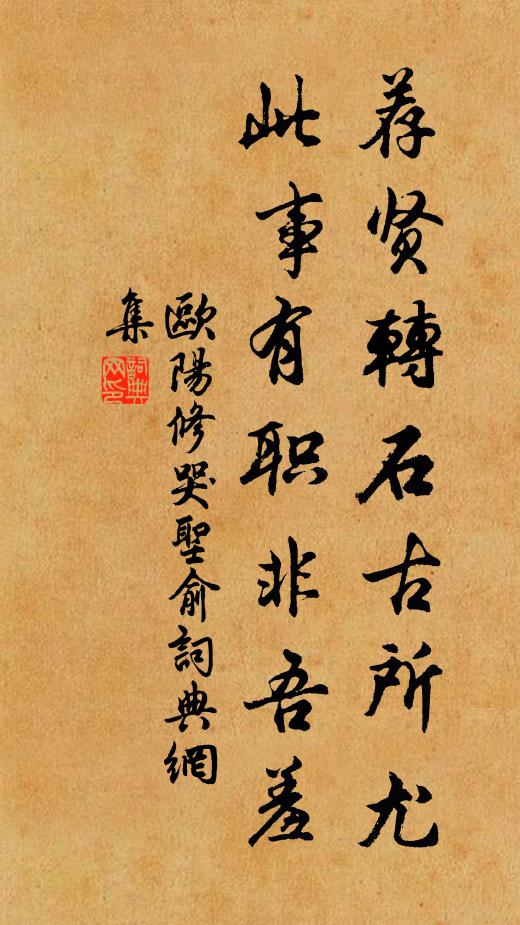 荐贤轉石古所尤
此事有职非吾羞
歐陽修哭聖俞詞典網
集
詞典
网印